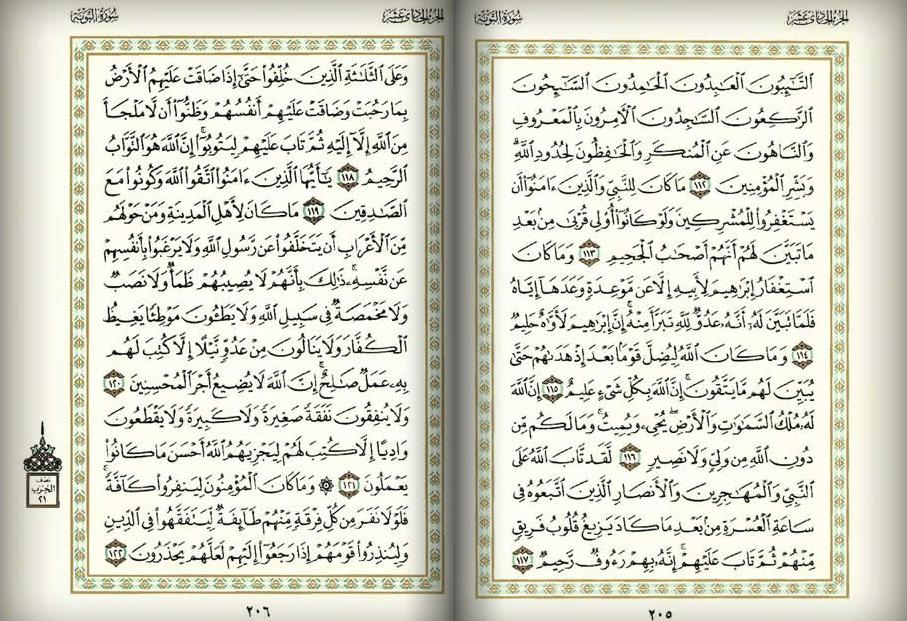 الجزء الحادى عشر
سورة التوبة
التَّٰٓئِبُونَ الْعَٰبِدُونَ الْحَٰمِدُونَ السَّٰٓئِحُونَ
الرَّٰكِعُونَ السَّٰجِدُونَ الْأٓمِرُونَ بِالْمَعْرُوفِ
وَالنَّاهُونَ عَنِ الْمُنكَرِ وَالْحَٰفِظُونَ لِحُدُودِ اللَّهِ ۗ
وَبَشِّرِ الْمُؤْمِنِينَ ١١٢ مَا كَانَ لِلنَّبِيِّ وَالَّذِينَ ءَامَنُوٓا۟ أَن
يَسْتَغْفِرُوا۟ لِلْمُشْرِكِينَ وَلَوْ كَانُوٓا۟ أُو۟لِى قُرْبَىٰ مِنۢ بَعْدِ
مَا تَبَيَّنَ لَهُمْ أَنَّهُمْ أَصْحَٰبُ الْجَحِيمِ ١١٣ وَمَا كَانَ
اسْتِغْفَارُ إِبْرَٰهِيمَ لِأَبِيهِ إِلَّا عَن مَّوْعِدَةٍ وَعَدَهَآ إِيَّاهُ
فَلَمَّا تَبَيَّنَ لَهُۥٓ أَنَّهُۥ عَدُوٌّ لِّلَّهِ تَبَرَّأَ مِنْهُ ۚ إِنَّ إِبْرَٰهِيمَ لَأَوَّٰهٌ حَلِيمٌ
١١٤ وَمَا كَانَ اللَّهُ لِيُضِلَّ قَوْمًۢا بَعْدَ إِذْ هَدَىٰهُمْ حَتَّىٰ
يُبَيِّنَ لَهُم مَّا يَتَّقُونَ ۚ إِنَّ اللَّهَ بِكُلِّ شَىْءٍ عَلِيمٌ ١١٥ إِنَّ اللَّهَ
لَهُۥ مُلْكُ السَّمَٰوَٰتِ وَالْأَرْضِ ۖ يُحْىِۦ وَيُمِيتُ ۚ وَمَا لَكُم مِّن
دُونِ اللَّهِ مِن وَلِىٍّ وَلَا نَصِيرٍ ١١٦ لَّقَد تَّابَ اللَّهُ عَلَى
النَّبِىِّ وَالْمُهَٰجِرِينَ وَالْأَنصَارِ الَّذِينَ اتَّبَعُوهُ فِى
سَاعَةِ الْعُسْرَةِ مِنۢ بَعْدِ مَا كَادَ يَزِيغُ قُلُوبُ فَرِيقٍ
مِّنْهُمْ ثُمَّ تَابَ عَلَيْهِمْ ۚ إِنَّهُۥ بِهِمْ رَءُوفٌ رَّحِيمٌ ١١٧
٢٠٥
الجزء الحادى عشر
سورة التوبة
وَعَلَى الثَّلَٰثَةِ الَّذِينَ خُلِّفُوا۟ حَتَّىٰٓ إِذَا ضَاقَتْ عَلَيْهِمُ الْأَرْضُ
بِمَا رَحُبَتْ وَضَاقَتْ عَلَيْهِمْ أَنفُسُهُمْ وَظَنُّوٓا۟ أَن لَّا مَلْجَأَ
مِنَ اللَّهِ إِلَّآ إِلَيْهِ ثُمَّ تَابَ عَلَيْهِمْ لِيَتُوبُوٓا۟ ۚ إِنَّ اللَّهَ هُوَ التَّوَّابُ
الرَّحِيمُ ١١٨ يَٰٓأَيُّهَا الَّذِينَ ءَامَنُوا۟ اتَّقُوا۟ اللَّهَ وَكُونُوا۟ مَعَ
الصَّٰدِقِينَ ١١٩ مَا كَانَ لِأَهْلِ الْمَدِينَةِ وَمَنْ حَوْلَهُم
مِّنَ الْأَعْرَابِ أَن يَتَخَلَّفُوا۟ عَن رَّسُولِ اللَّهِ وَلَا يَرْغَبُوا۟ بِأَنفُسِهِمْ
عَن نَّفْسِهِۦ ۚ ذَٰلِكَ بِأَنَّهُمْ لَا يُصِيبُهُمْ ظَمَأٌ وَلَا نَصَبٌ
وَلَا مَخْمَصَةٌ فِى سَبِيلِ اللَّهِ وَلَا يَطَـُٔونَ مَوْطِئًا يَغِيظُ
الْكُفَّارَ وَلَا يَنَالُونَ مِنْ عَدُوٍّ نَّيْلًا إِلَّا كُتِبَ لَهُم
بِهِۦ عَمَلٌ صَٰلِحٌ ۚ إِنَّ اللَّهَ لَا يُضِيعُ أَجْرَ الْمُحْسِنِينَ ١٢٠
وَلَا يُنفِقُونَ نَفَقَةً صَغِيرَةً وَلَا كَبِيرَةً وَلَا يَقْطَعُونَ
وَادِيًا إِلَّا كُتِبَ لَهُمْ لِيَجْزِيَهُمُ اللَّهُ أَحْسَنَ مَا كَانُوا۟
يَعْمَلُونَ ١٢١ ۞ وَمَا كَانَ الْمُؤْمِنُونَ لِيَنفِرُوا۟ كَآفَّةً ۚ
فَلَوْلَا نَفَرَ مِن كُلِّ فِرْقَةٍ مِّنْهُمْ طَآئِفَةٌ لِّيَتَفَقَّهُوا۟ فِى الدِّينِ
وَلِيُنذِرُوا۟ قَوْمَهُمْ إِذَا رَجَعُوٓا۟ إِلَيْهِمْ لَعَلَّهُمْ يَحْذَرُونَ ١٢٢
نصف
الحزب
٢١
٢٠٦